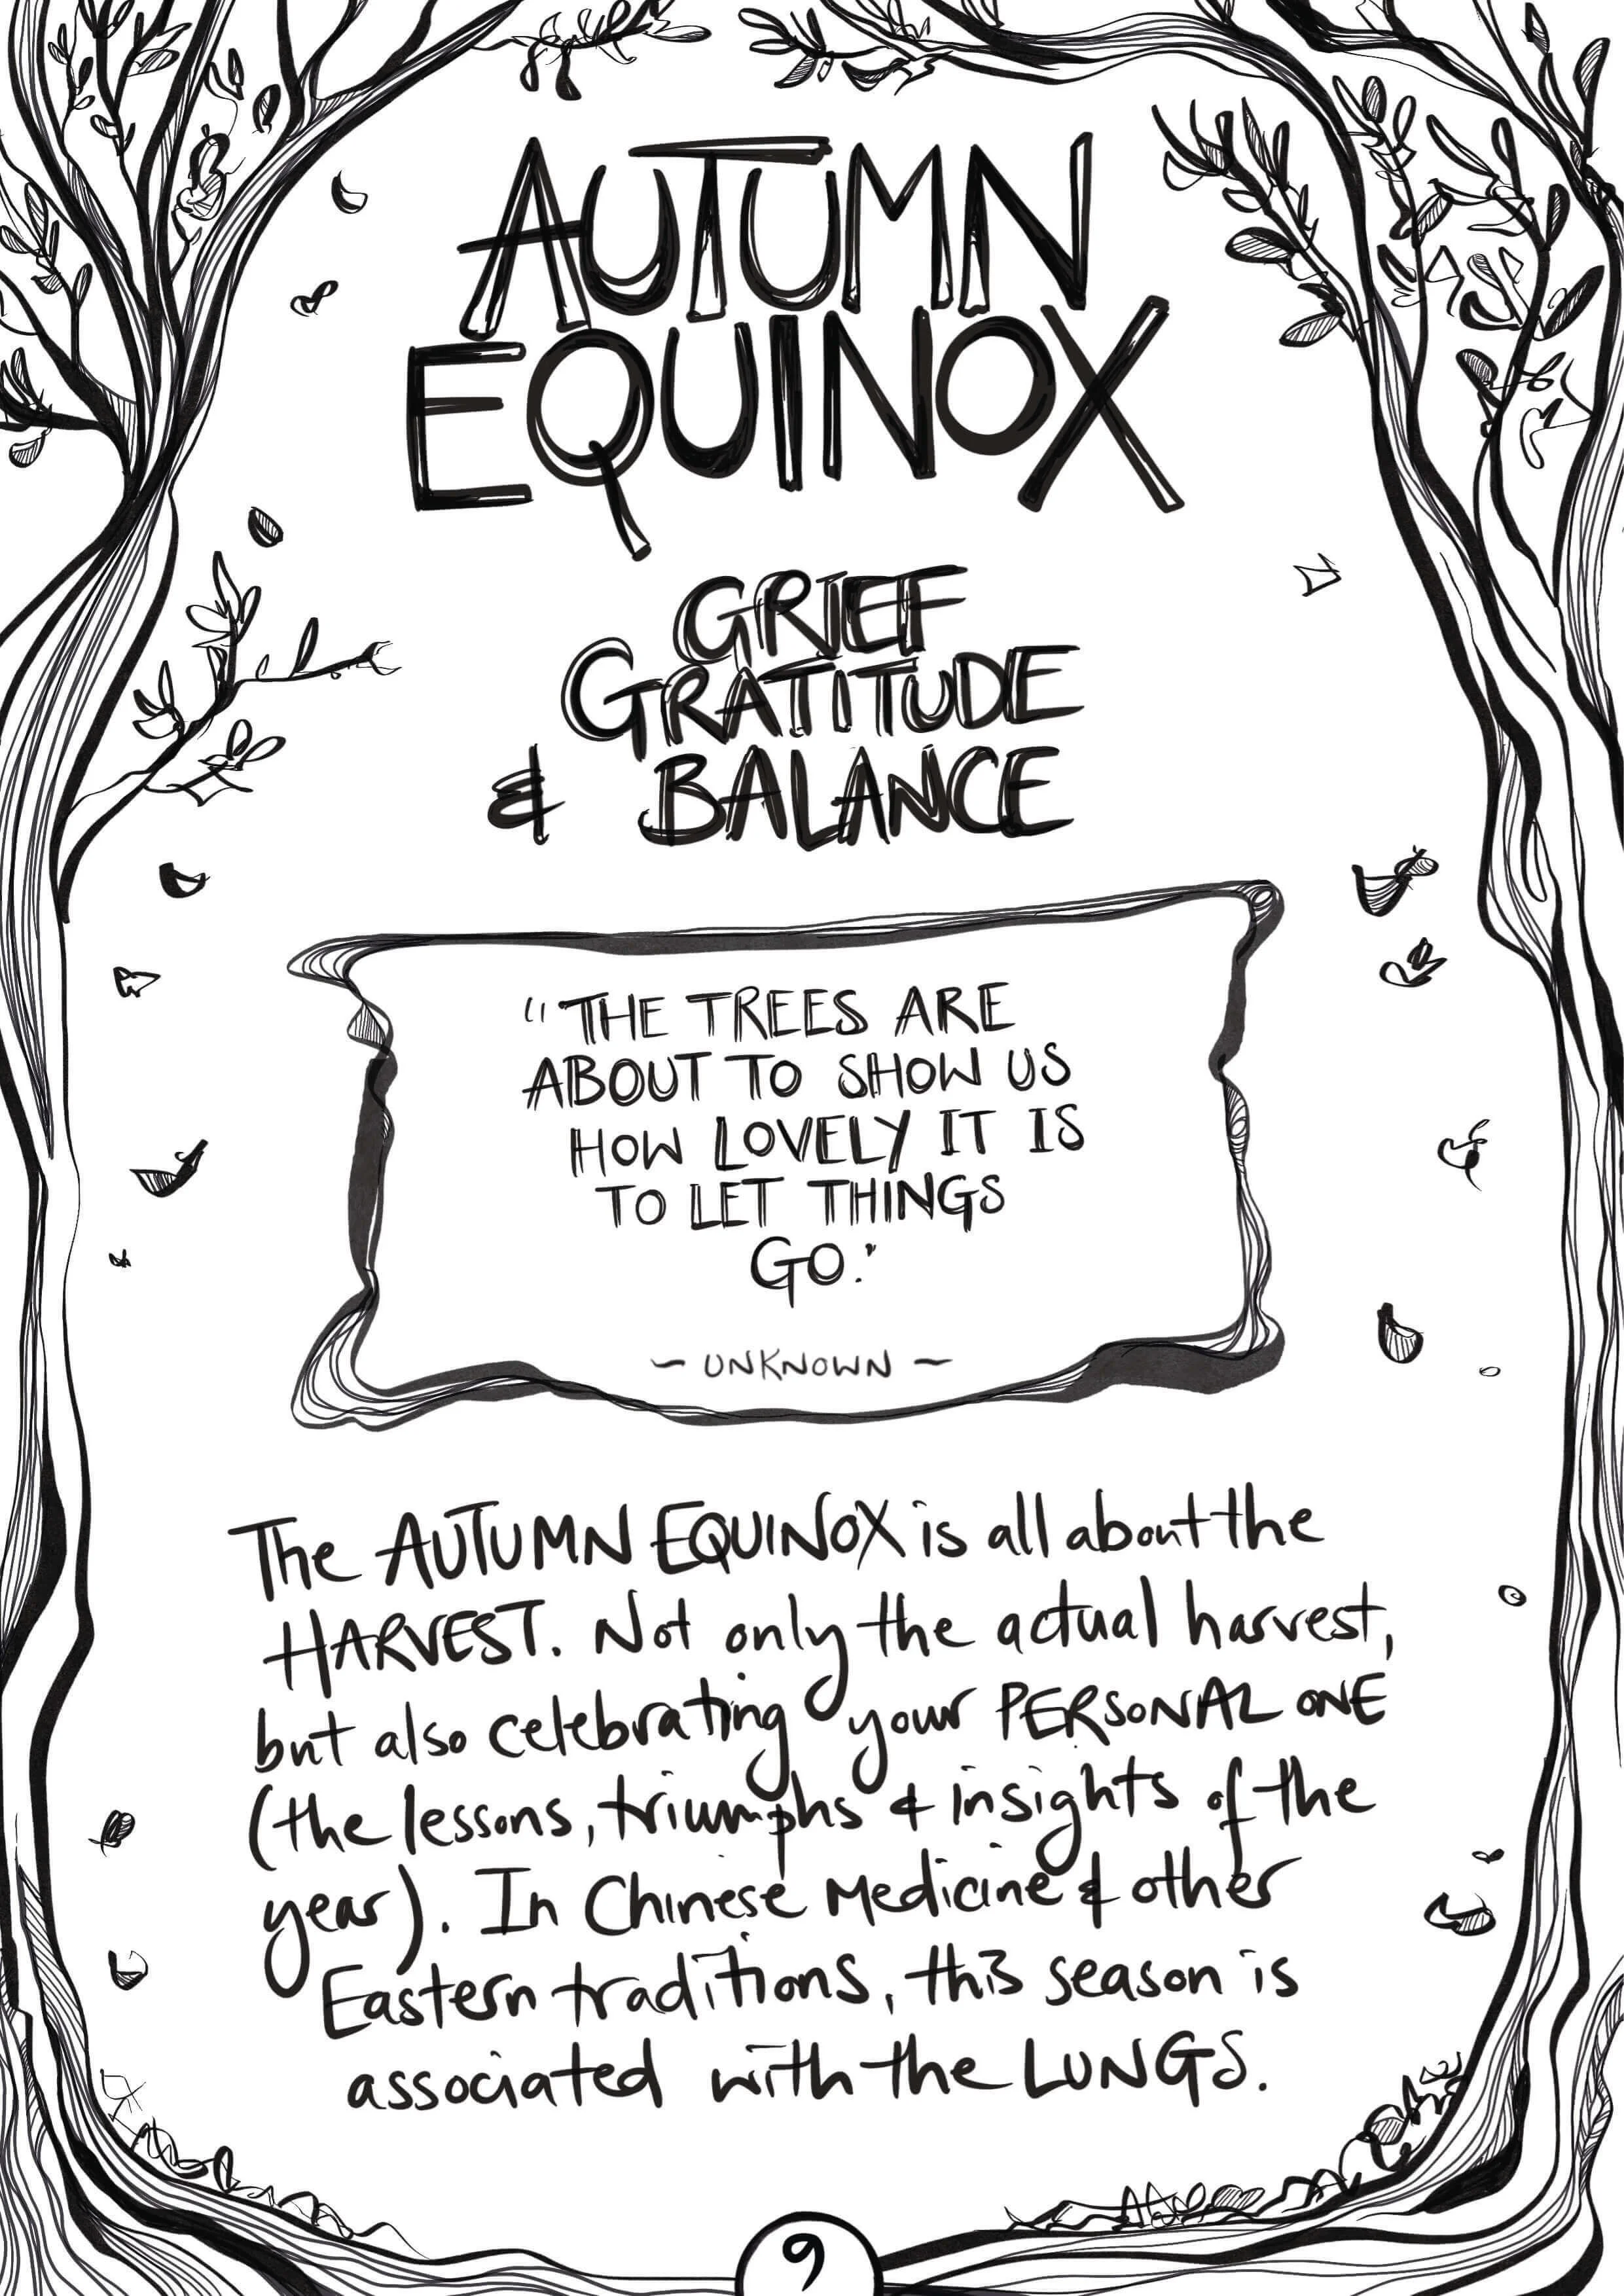 AUTUMN
EQUINOX
GRIEF
GRATITUDE
& BALANCE
"THE TREES ARE
ABOUT TO SHOW US
HOW LOVELY IT IS
TO LET THINGS
GO."
~ UNKNOWN ~
The AUTUMN EQUINOX is all about the
HARVEST. Not only the actual harvest,
but also celebrating your PERSONAL ONE
(the lessons, triumphs & insights of the
year). In Chinese Medicine & other
Eastern traditions, this season is
associated with the LUNGS.
9